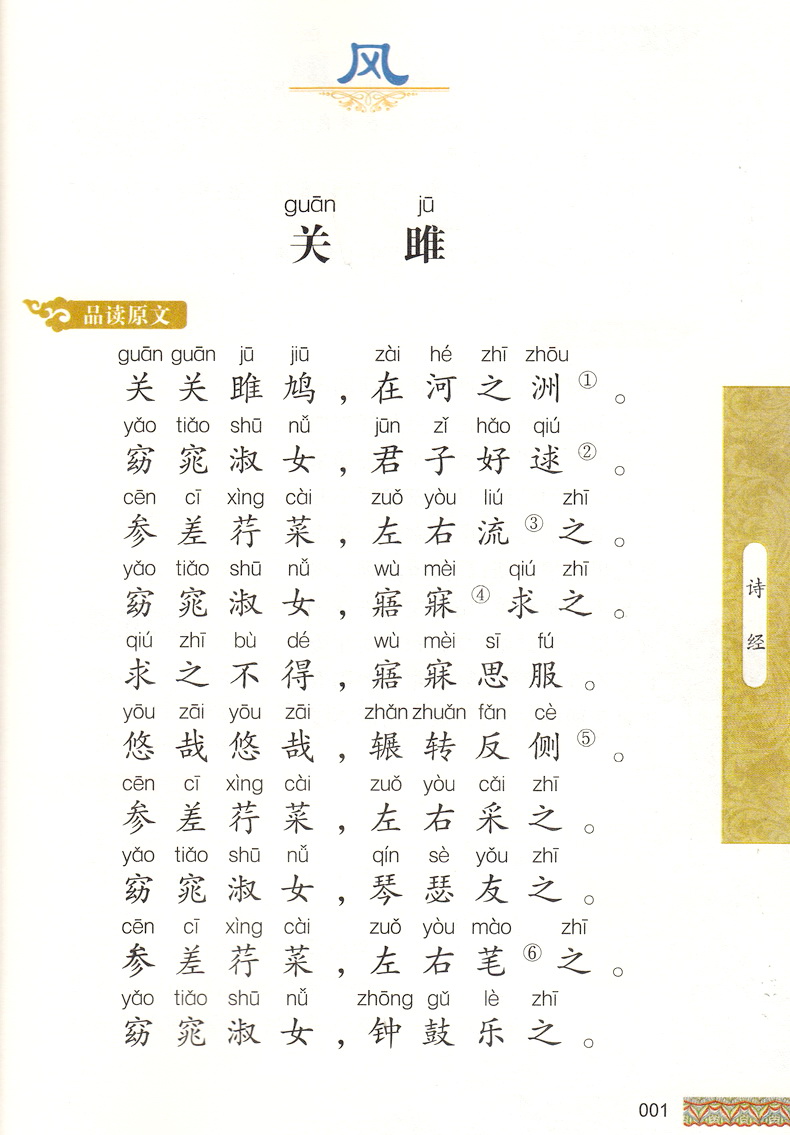 风
guān jū
关 雎
品读原文
guān guān jū jiū zài hé zhī zhōu
关 关 雎 鸠 ，在 河 之 洲 ① 。
yǎo tiǎo shū nǚ jūn zǐ hǎo qiú
窈 窕 淑 女 ，君 子 好 逑 ② 。
cēn cī xìng cài zuǒ yòu liú zhī
参 差 荇 菜 ，左 右 流 ③ 之 。
yǎo tiǎo shū nǚ wù mèi qiú zhī
窈 窕 淑 女 ，寤 寐 ④ 求 之 。
qiú zhī bù dé wù mèi sī fú
求 之 不 得 ，寤 寐 思 服 。
yōu zāi yōu zāi zhǎn zhuǎn fǎn cè
悠 哉 悠 哉 ，辗 转 反 侧 ⑤ 。
cēn cī xìng cài zuǒ yòu cǎi zhī
参 差 荇 菜 ，左 右 采 之 。
yǎo tiǎo shū nǚ qín sè yǒu zhī
窈 窕 淑 女 ，琴 瑟 友 之 。
cēn cī xìng cài zuǒ yòu mào zhī
参 差 荇 菜 ，左 右 笔 ⑥ 之 。
yǎo tiǎo shū nǚ zhōng gǔ lè zhī
窈 窕 淑 女 ，钟 鼓 乐 之 。
诗经
001